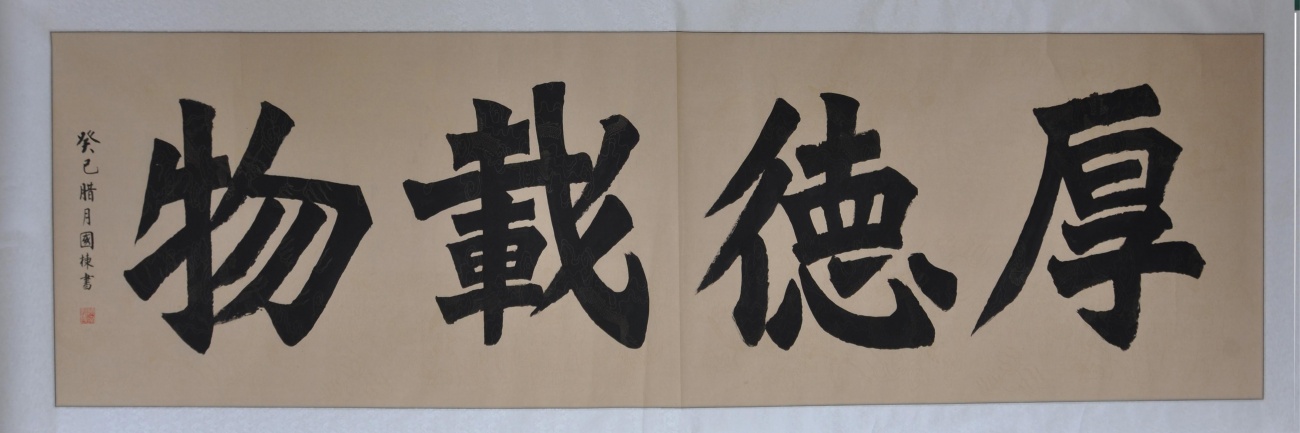 厚德載物
癸巳腊月國棟書